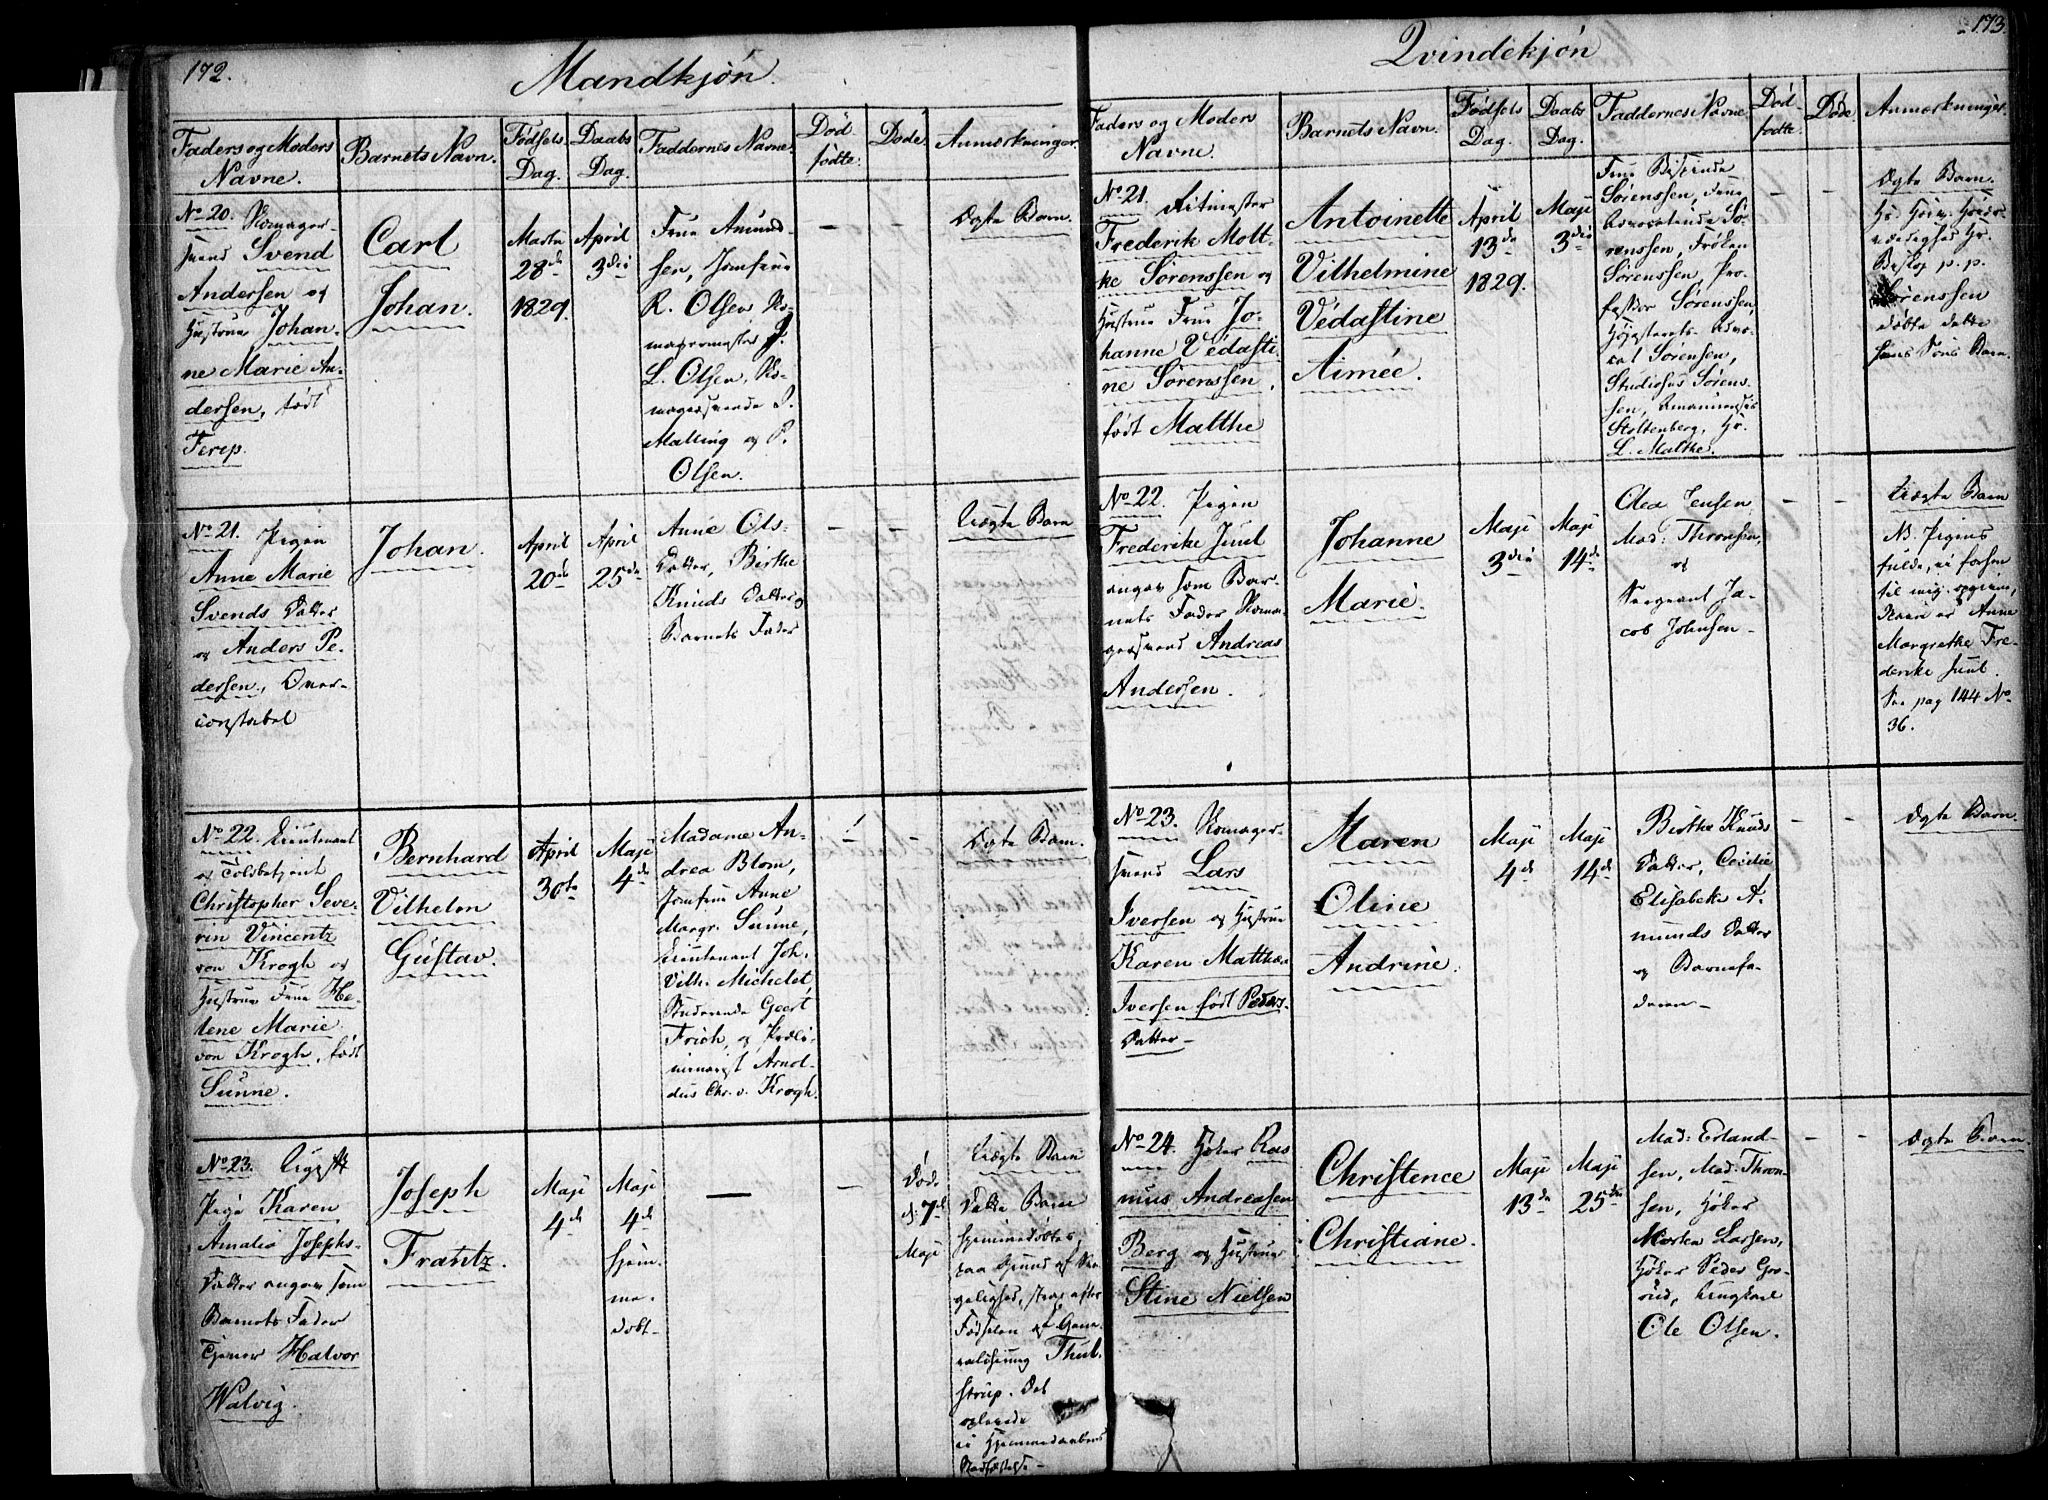 172.
Mandkjøn.
Faders og Moders
Navne.
Barnets Navn.
Fødsels
Dag.
Daabs
Dag.
Faddernes Navne.
Død-
fødte.
Døde.
Anmærkninger.
No 20.
Svend
Andersen og
Hustrue Johan-
ne Marie An-
dersen, født
Ferep.
Carl
Johan.
Martii
28de
1829.
April
3die
Frue Amund-
sen, Jomfrue
R. Olsen
L. Olsen,
Malling og P.
Olsen.
—
—
Ægte Barn.
No 21. Pigen
Anne Marie
Svends Datter
og Anders Pe-
dersen, Over-
constabel
Johan.
April
20de
April
25de
Anne Ols-
Datter, Birthe
Knuds Datter og
Barnets Fader
—
—
Uægte Barn
No 22. Lieutenant
og Toldbetjent
Christopher Seve-
rin Vincentz
von Krogh og
Hustrue Frue He-
lene Marie
von Krogh, født
Sunne.
Bernhard
Vilhelm
Gustav.
April
30te
Maji
4de
Madame An-
drea Blom,
Jomfrue Anne
Margr. Sunne,
Lieutenant Joh.
Vilh. Michelet,
Studerende Geert
Frich, og Præli-
minarist Arnol-
dus Chr. v. Krogh.
—
Ægte Barn.
No 23. Ugift
Pige Karen
Amalia Josephs-
Datter angav som
Barnets Fader
Tjener Halvor
Walvig.
Joseph
Frantz.
Maji
4de
Maji
4de
hjem-
me-
døbt-
—
—
Død
d: 7de
Maji
Uægte Barn
Dette Barn
hjemmedøbtes,
paa Grund af Sva-
gelighed, strax efter
Fødselen af
Thul-
strup. Det
oplevede
ei Hjemmedaabens
Stadfæstelse-
173.
Qvindekjøn
Faders og Moders
Navne.
Barnets Navn.
Fødsels
Dag.
Daabs
Dag.
Faddernes Navne
Død-
fødte.
Døde
Anmærkninger.
No 21. Ritmester
Frederik Molt-
ke Sørenssen og
Hustrue Frue Jo-
hanne Vedasti-
ne Sørenssen,
født Malthe
Antoinette
Vilhelmine
Védastine
Aimée.
April
13de
1829.
Maji
3die
Frue Bispinde
Sørenssen, Frue
Advocatinde Sø-
renssen, Frøken
Sørenssen, Pro-
fessor Sørenssen,
Høiesterets-Advo-
cat Sørensen,
Studiosus Sørens-
sen, Amanuensis
Stoltenberg, Hr.
L. Malthe.
—
—
Ægte Barn.
Hs. Høiv. Høiær-
værdighed Hr.
Biskop p. p.
Sørenssen
døbte dette
hans Søns Barn.
No 22. Pigen
Frederike Juul
angav som Bar-
nets Fader
Andreas
Andersen.
Johanne
Marie.
Maji
3die
Maji
14de
Olea Jensen,
Mad: Thronsen,
og
Sergeant Ja-
cob Johnsen-
—
—
Uægte Barn
NB. Pigens
fulde, ei forhen
til mig opgivne,
Navn er Anne
Margrethe Fre-
derike Juul.
See pag 144 No
36.
No 23.
Lars
Iversen og Hustrue
Karen Mathea
Iversen født Peders-
Datter-
Maren
Oline
Andrine.
Maji
4de
Maji
14de
Birthe Knuds
Datter, Cecilie
Elisabeth A-
munds Datter
og Barnefa-
deren-
—
—
Ægte Barn.
No 24. Høker Ras
mus Andreasen
Berg og Hustrue
Stine Nielsen
Christence
Christiane.
Maji
13de
Maji
25de
Mad: Erland-
sen, Mad: Thron-
sen, Høker
Morten Larsen,
Høker Peder
Ole Olsen.
—
—
Ægte Barn.